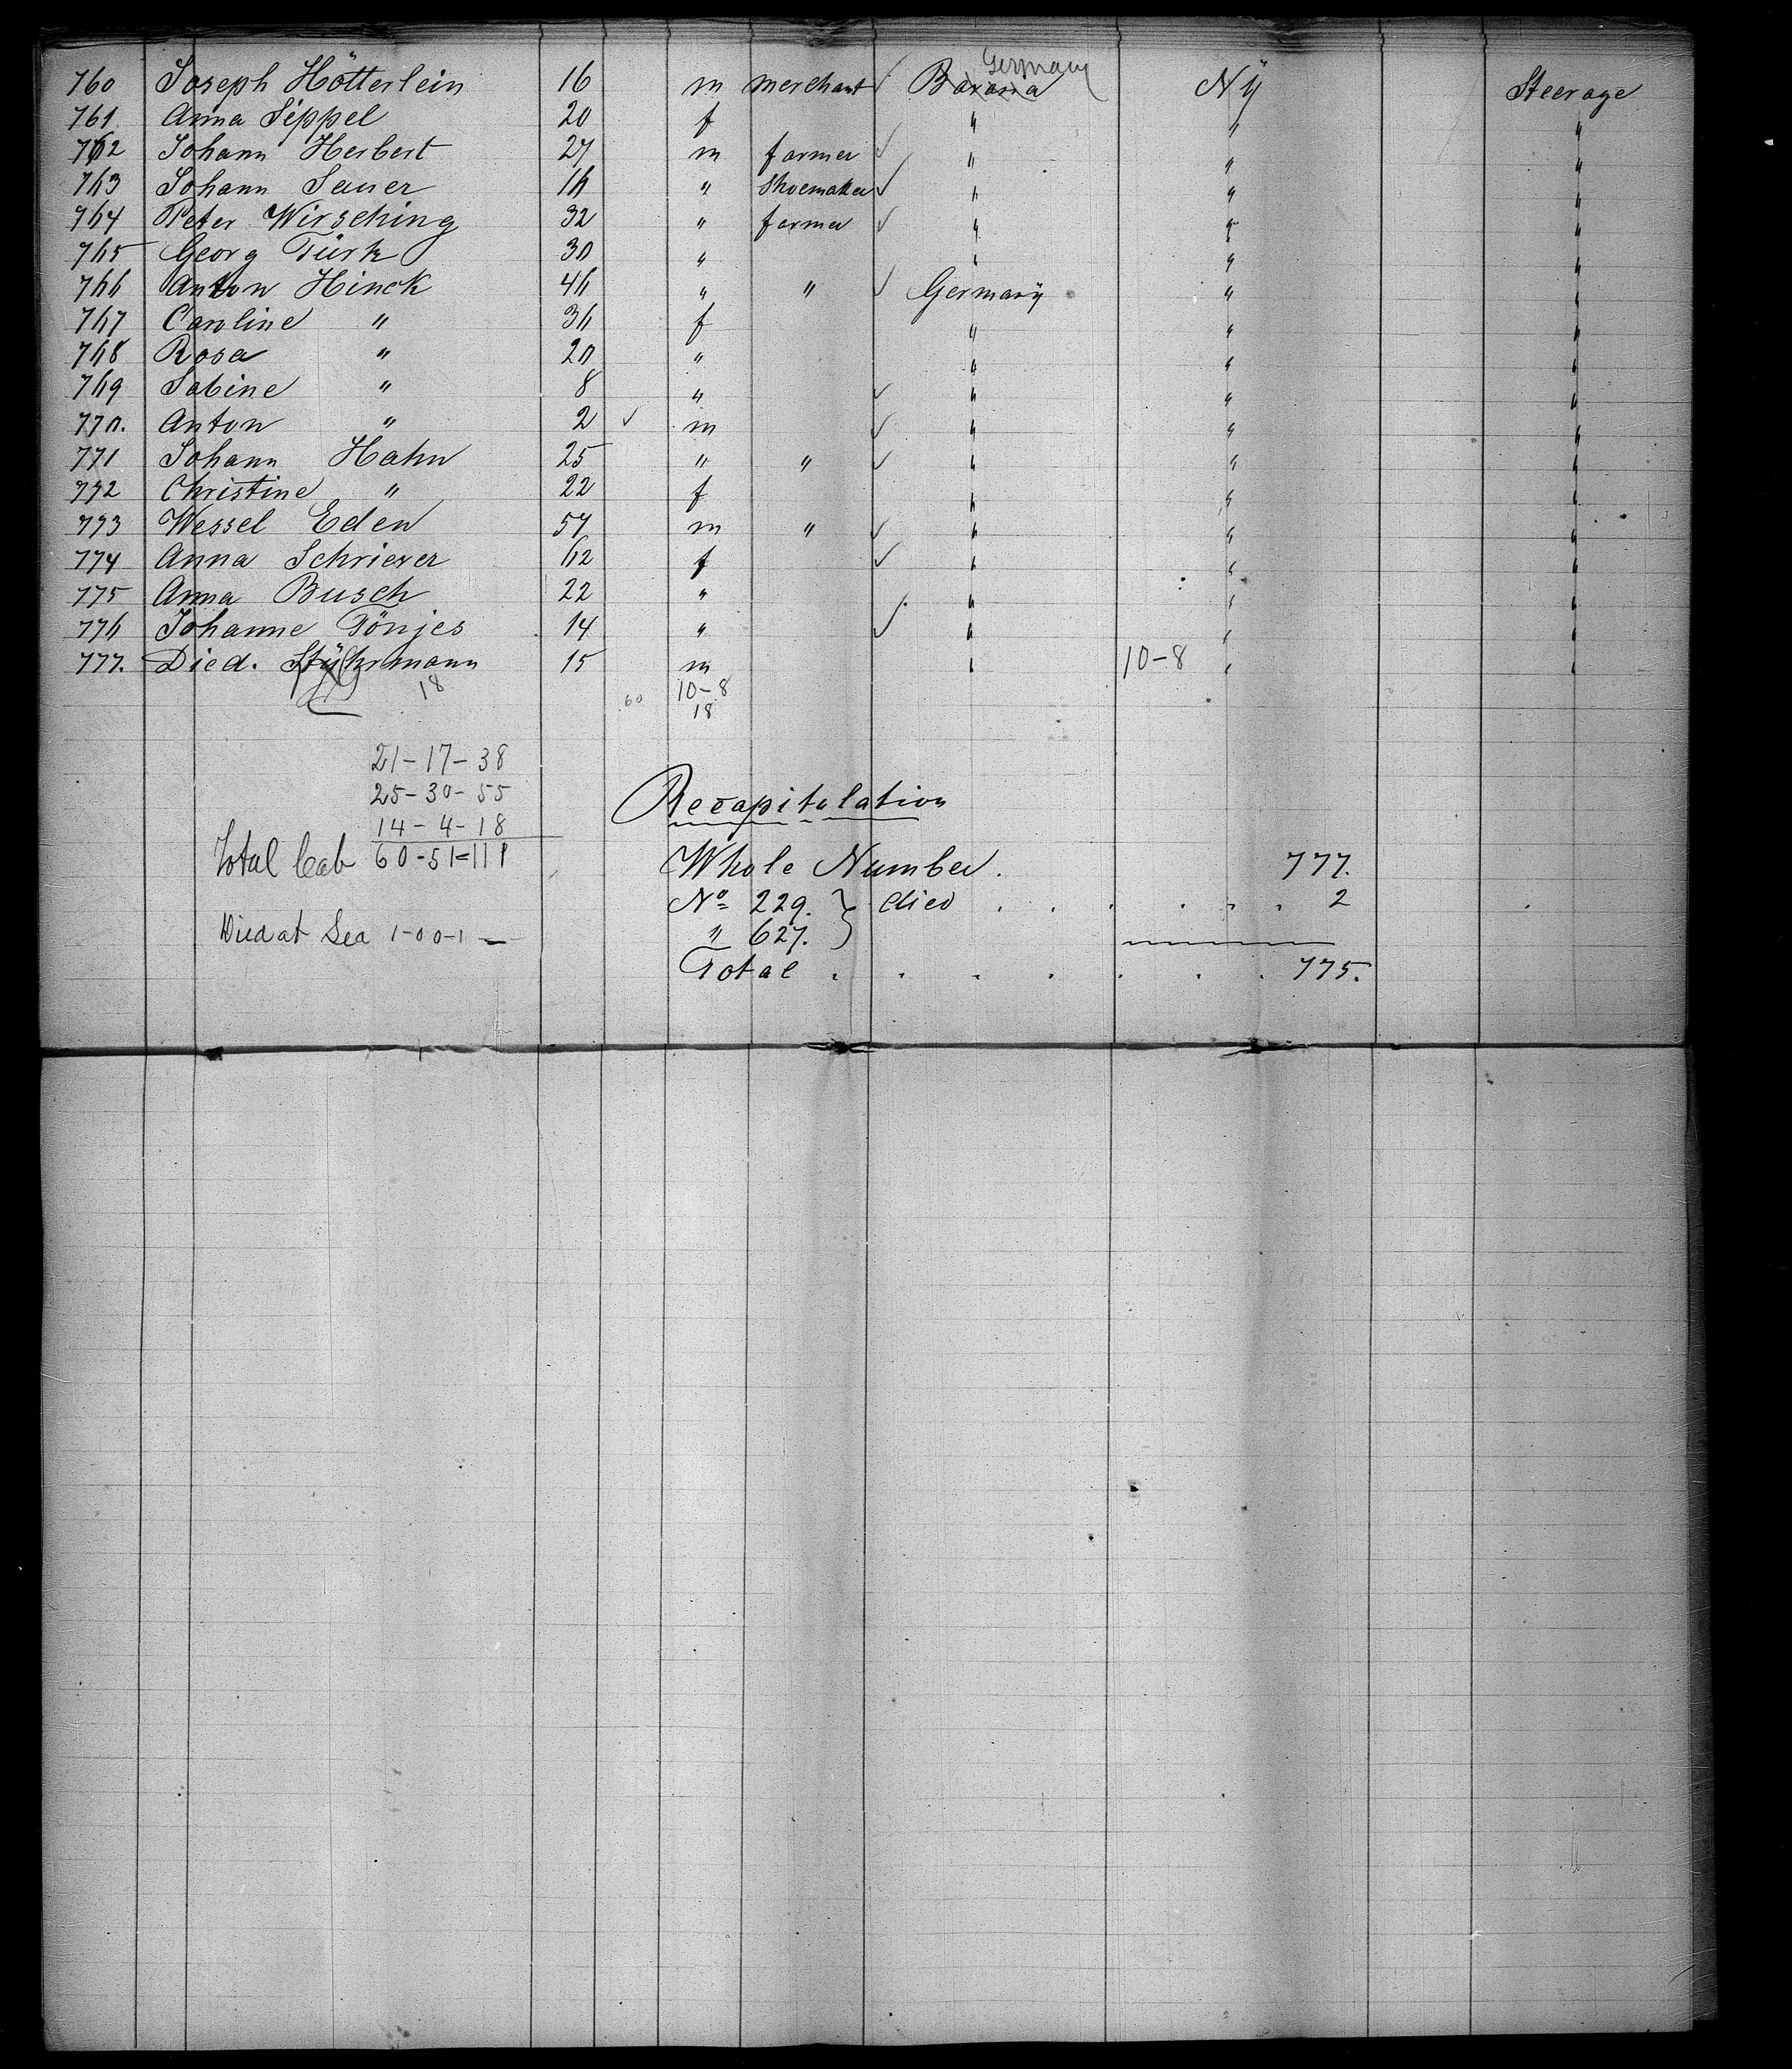 760 Joseph Hötterlein 16 m merchant ✓ Bavaria Germany NY Steerage
761 Anna Seppel 20 f " " "
762 Johann Herbert 27 m farmer ✓ " " "
763 Johann Sauer 16 " Shoemaker ✓ " " "
764 Peter Wirsching 32 " farmer ✓ " " "
765 Georg Türk 30 " " " "
766 Anton Hinck 46 " " ✓ Germany " "
767 Caroline " 36 f " " "
768 Rosa " 20 " " " "
769 Sabine " 8 " ✓ " " "
770. Anton " 2 ✓ m ✓ " " "
771 Johann Hahn 25 " " ✓ " " "
772 Christine " 22 f " " "
773 Wessel Eden 57 m " ✓ " " "
774 Anna Schriever 62 f ✓ " " "
775 Anna Busch 22 " ✓ " " "
776 Johanne Tönjes 14 " ✓ " " "
777. Died. Stührmann 15 m " 10-8 " "
18 60 10-8
18
21-17-38
25-30-55
14-4-18
Total Cab 60-51=111
Died at Sea 1-00-1 —
Recapitulation
Whole Number. 777.
No 229. } died . . . . . . 2
" 627.
Total . . . . . . . 775.